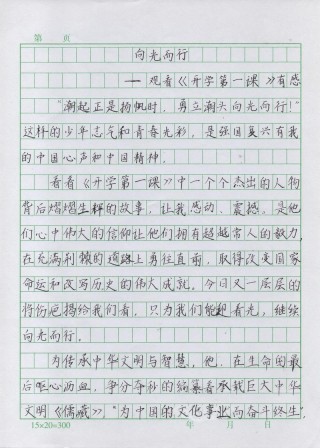 第 页
向光而行
——观看《开学第一课》有感
“潮起正是扬帆时，勇立潮头向光而行！”
这样的少年志气和青春光彩，是强国复兴有我
的中国心声和中国精神。
看着《开学第一课》中一个个杰出的人物
背后熠熠生辉的故事，让我感动、震撼。是他
们心中伟大的信仰让他们拥有超越常人的毅力，
在充满荆棘的道路上勇往直前，取得改变国家
命运和改写历史的伟大成就。今日又一层层的
将伤疤揭给我们看，只为我们能起看光，继续
向光而行。
为传承中华文明与智慧。他，在生命的最
后呕心沥血，争分夺秒的编纂着承载巨大中华
文明《儒藏》“为中国的文化事业而奋斗终生”，
15×20=300 年 月 日